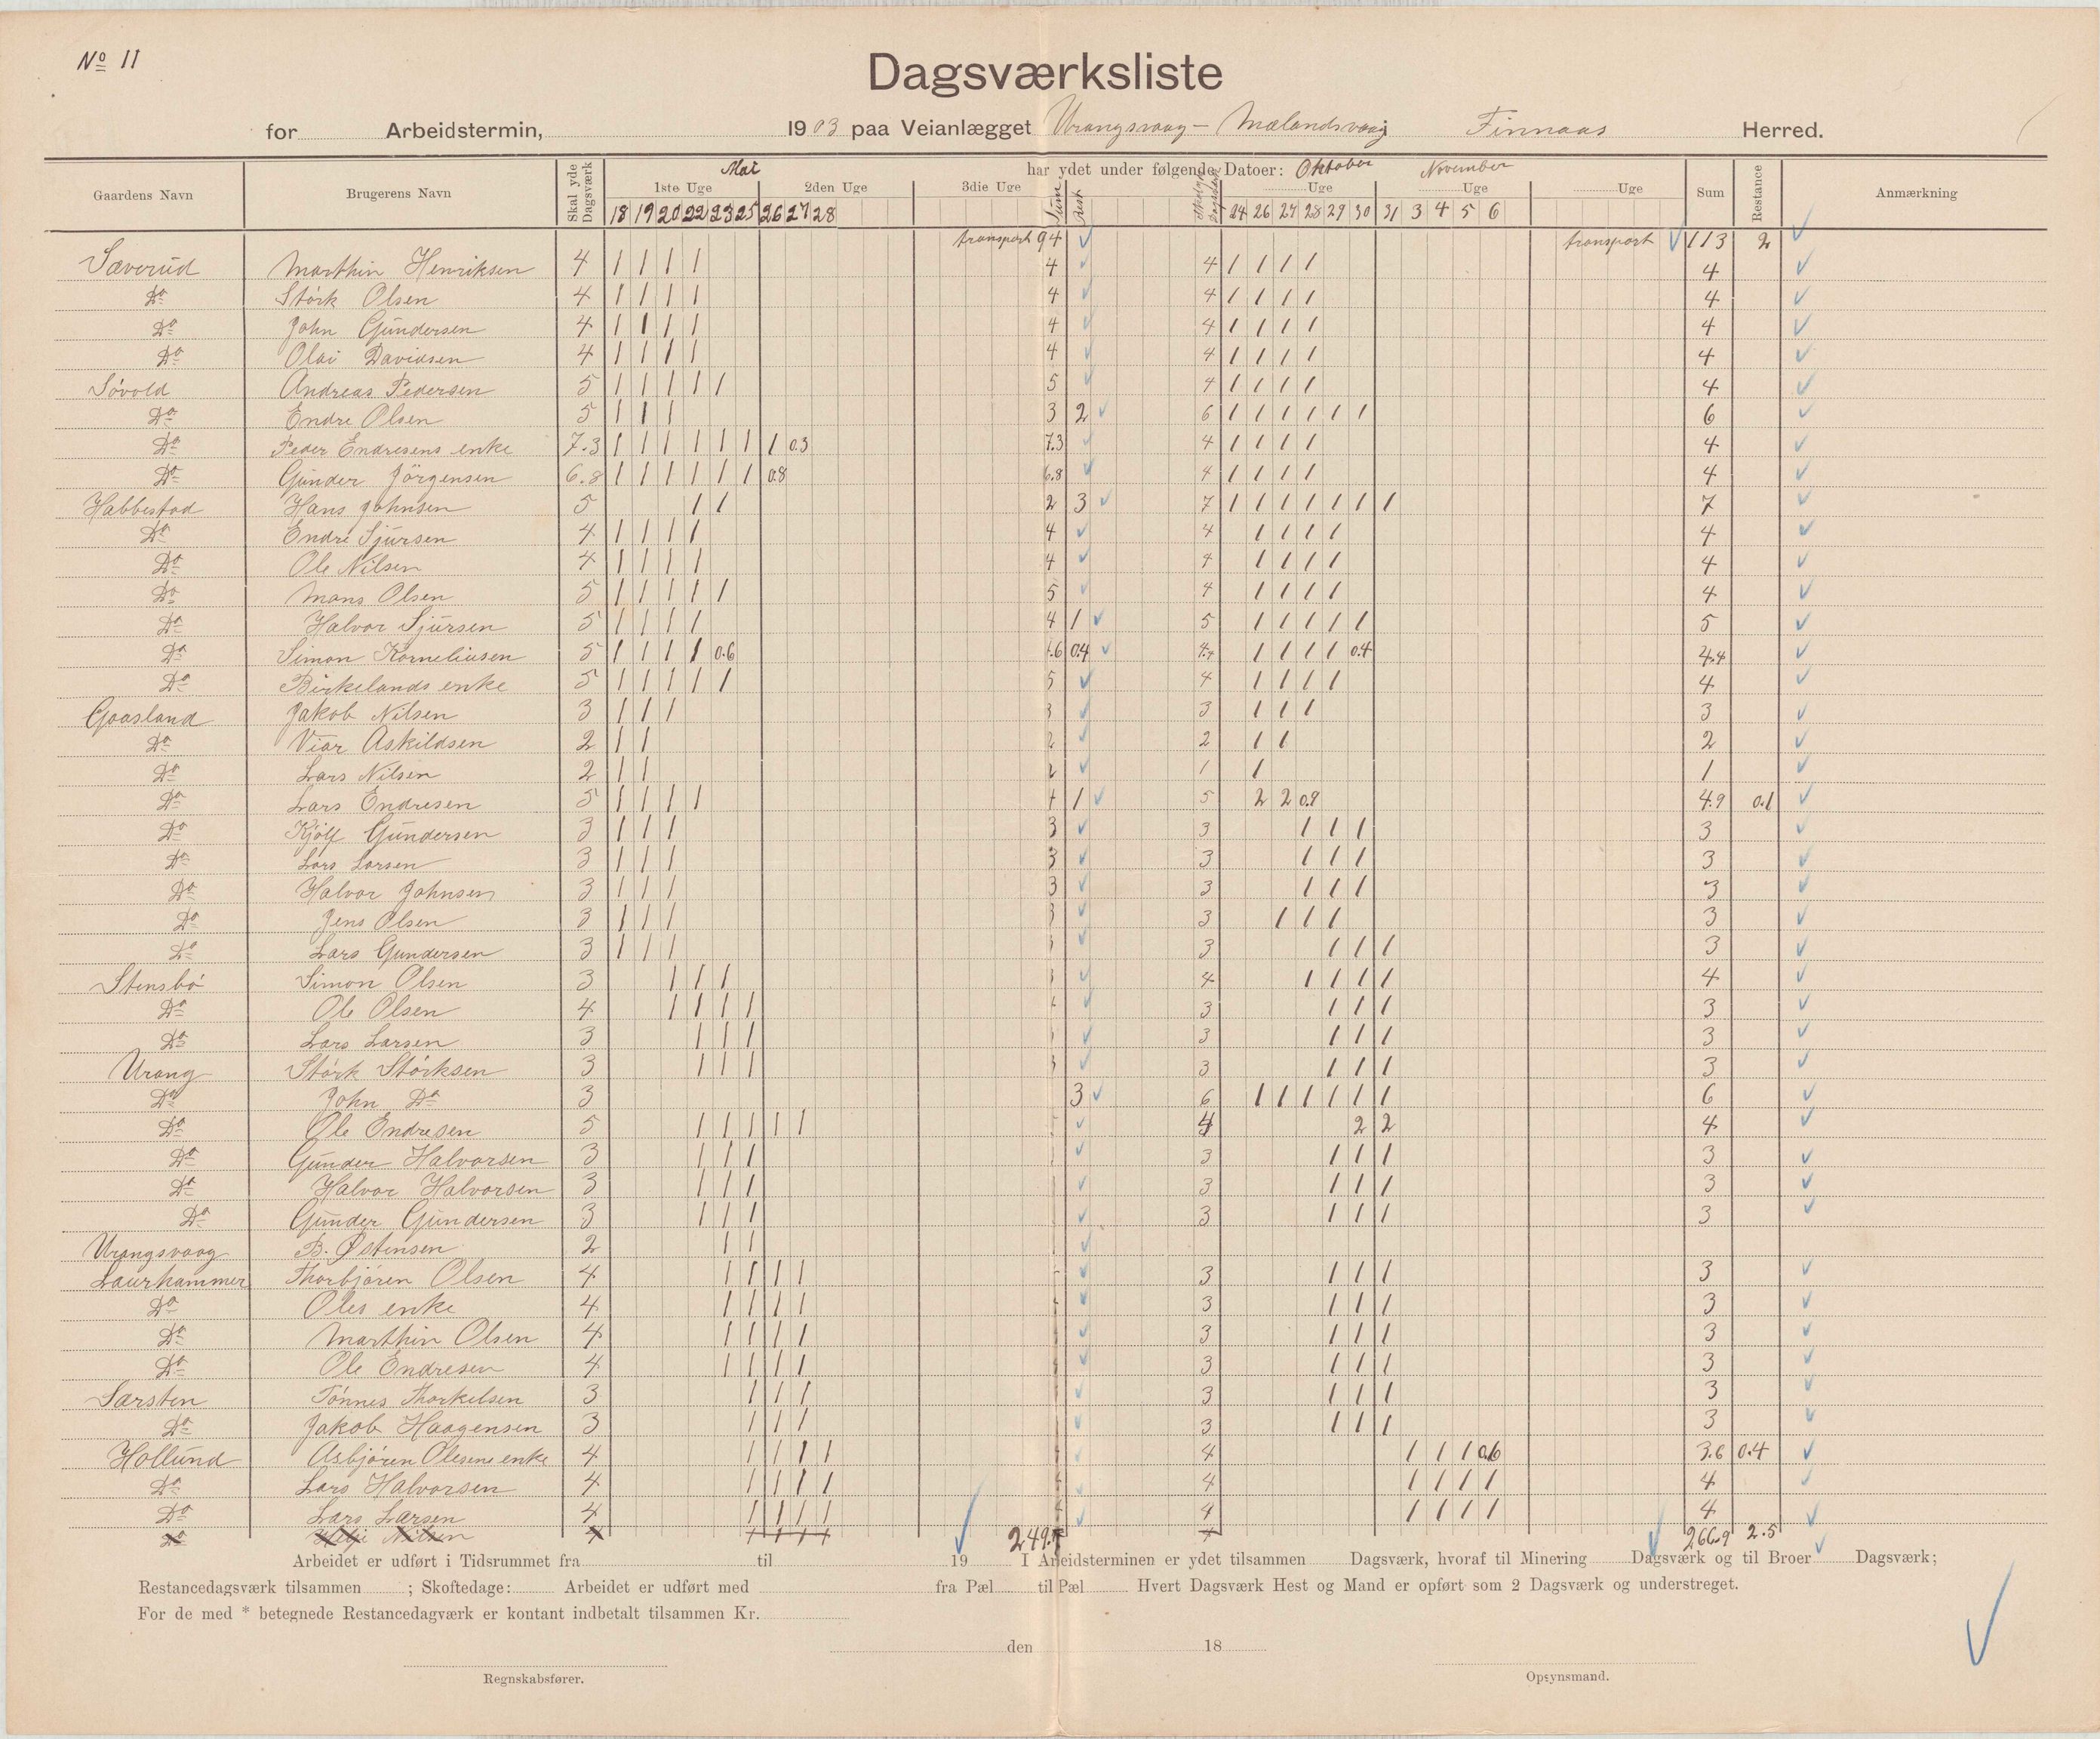 No 11
Dagsværksliste
for Arbeidstermin, 1903 paa Veianlægget Urangsvaag - Mælandsvaag Finnaas Herred.
Gaardens Navn Brugerens Navn Skal yde Dagsværk Mai har ydet under følgende Datoer: Oktober November Sum Restance Anmærkning
1ste Uge 2den Uge 3die Uge Sum Rest Skal yde Dagsværk Uge Uge Uge
18 19 20 22 23 25 26 27 28 24 26 27 28 29 30 31 3 4 5 6
transport 94 transport 113 2
Sæverud Marthin Henriksen 4 1 1 1 1 4 4 1 1 1 1 4
Do Störk Olsen 4 1 1 1 1 4 4 1 1 1 1 4
Do John Gundersen 4 1 1 1 1 4 4 1 1 1 1 4
Do Olai Davidsen 4 1 1 1 1 4 4 1 1 1 1 4
Sövold Andreas Pedersen 5 1 1 1 1 1 5 4 1 1 1 1 4
Do Endre Olsen 5 1 1 1 3 2 6 1 1 1 1 1 1 6
Do Peder Endresens enke 7.3 1 1 1 1 1 1 1 0.3 7.3 4 1 1 1 1 4
Do Gunder Jörgensen 6.8 1 1 1 1 1 1 0.8 6.8 4 1 1 1 1 4
Habbestad Hans Johnsen 5 1 1 2 3 7 1 1 1 1 1 1 1 7
Do Endre Sjursen 4 1 1 1 1 4 4 1 1 1 1 4
Do Ole Nilsen 4 1 1 1 1 4 4 1 1 1 1 4
Do Mons Olsen 5 1 1 1 1 1 5 4 1 1 1 1 4
Do Halvor Sjursen 5 1 1 1 1 4 1 5 1 1 1 1 1 5
Do Simon Korneliusen 5 1 1 1 1 0.6 4.6 0.4 4.4 1 1 1 1 0.4 4.4
Do Birkelands enke 5 1 1 1 1 1 5 4 1 1 1 1 4
Gaasland Jakob Nilsen 3 1 1 1 3 3 1 1 1 3
Do Viar Askildsen 2 1 1 2 2 1 1 2
Do Lars Nilsen 2 1 1 2 1 1 1
Do Lars Endresen 5 1 1 1 1 4 1 5 2 2 0.9 4.9 0.1
Do Kjölf Gundersen 3 1 1 1 3 3 1 1 1 3
Do Lars Larsen 3 1 1 1 3 3 1 1 1 3
Do Halvor Johnsen 3 1 1 1 3 3 1 1 1 3
Do Jens Olsen 3 1 1 1 3 3 1 1 1 3
Do Lars Gundersen 3 1 1 1 3 1 1 1 3
Stensbö Simon Olsen 3 1 1 1 4 1 1 1 1 4
Do Ole Olsen 4 1 1 1 1 3 1 1 1 3
Do Lars Larsen 3 1 1 1 3 1 1 1 3
Urang Störk Störksen 3 1 1 1 3 3 1 1 1 3
Do John Do 3 3 6 1 1 1 1 1 1 6
Do Ole Endresen 5 1 1 1 1 1 4 2 2 4
Do Gunder Halvorsen 3 1 1 1 3 1 1 1 3
Do Halvor Halvorsen 3 1 1 1 3 1 1 1 3
Do Gunder Gundersen 3 1 1 1 3 1 1 1 3
Urangsvaag B. Østensen 2 1 1
Laurhammer Thorbjören Olsen 4 1 1 1 1 3 1 1 1 3
Do Oles enke 4 1 1 1 1 3 1 1 1 3
Do Marthin Olsen 4 1 1 1 1 3 1 1 1 3
Do Ole Endresen 4 1 1 1 1 3 1 1 1 3
Sarsten Tönnes Thorkelsen 3 1 1 1 3 1 1 1 3
Do Jakob Haagensen 3 1 1 1 3 1 1 1 3
Hollund Asbjören Olesens enke 4 1 1 1 1 4 1 1 1 0.6 3.6 0.4
Do Lars Halvorsen 4 1 1 1 1 4 1 1 1 1 4
Do Lars Larsen 4 1 1 1 1 4 1 1 1 1 4
Do Nilsen 4 1 1 1 1 266.9 2.5
Arbeidet er udført i Tidsrummet fra til 19 I Arbeidsterminen er ydet tilsammen Dagsværk, hvoraf til Minering Dagsværk og til Broer Dagsværk;
Restancedagsværk tilsammen ; Skoftedage: Arbeidet er udført med fra Pæl til Pæl Hvert Dagsværk Hest og Mand er opført som 2 Dagsværk og understreget.
For de med * betegnede Restancedagværk er kontant indbetalt tilsammen Kr.
den 18
Regnskabsfører. Opsynsmand.